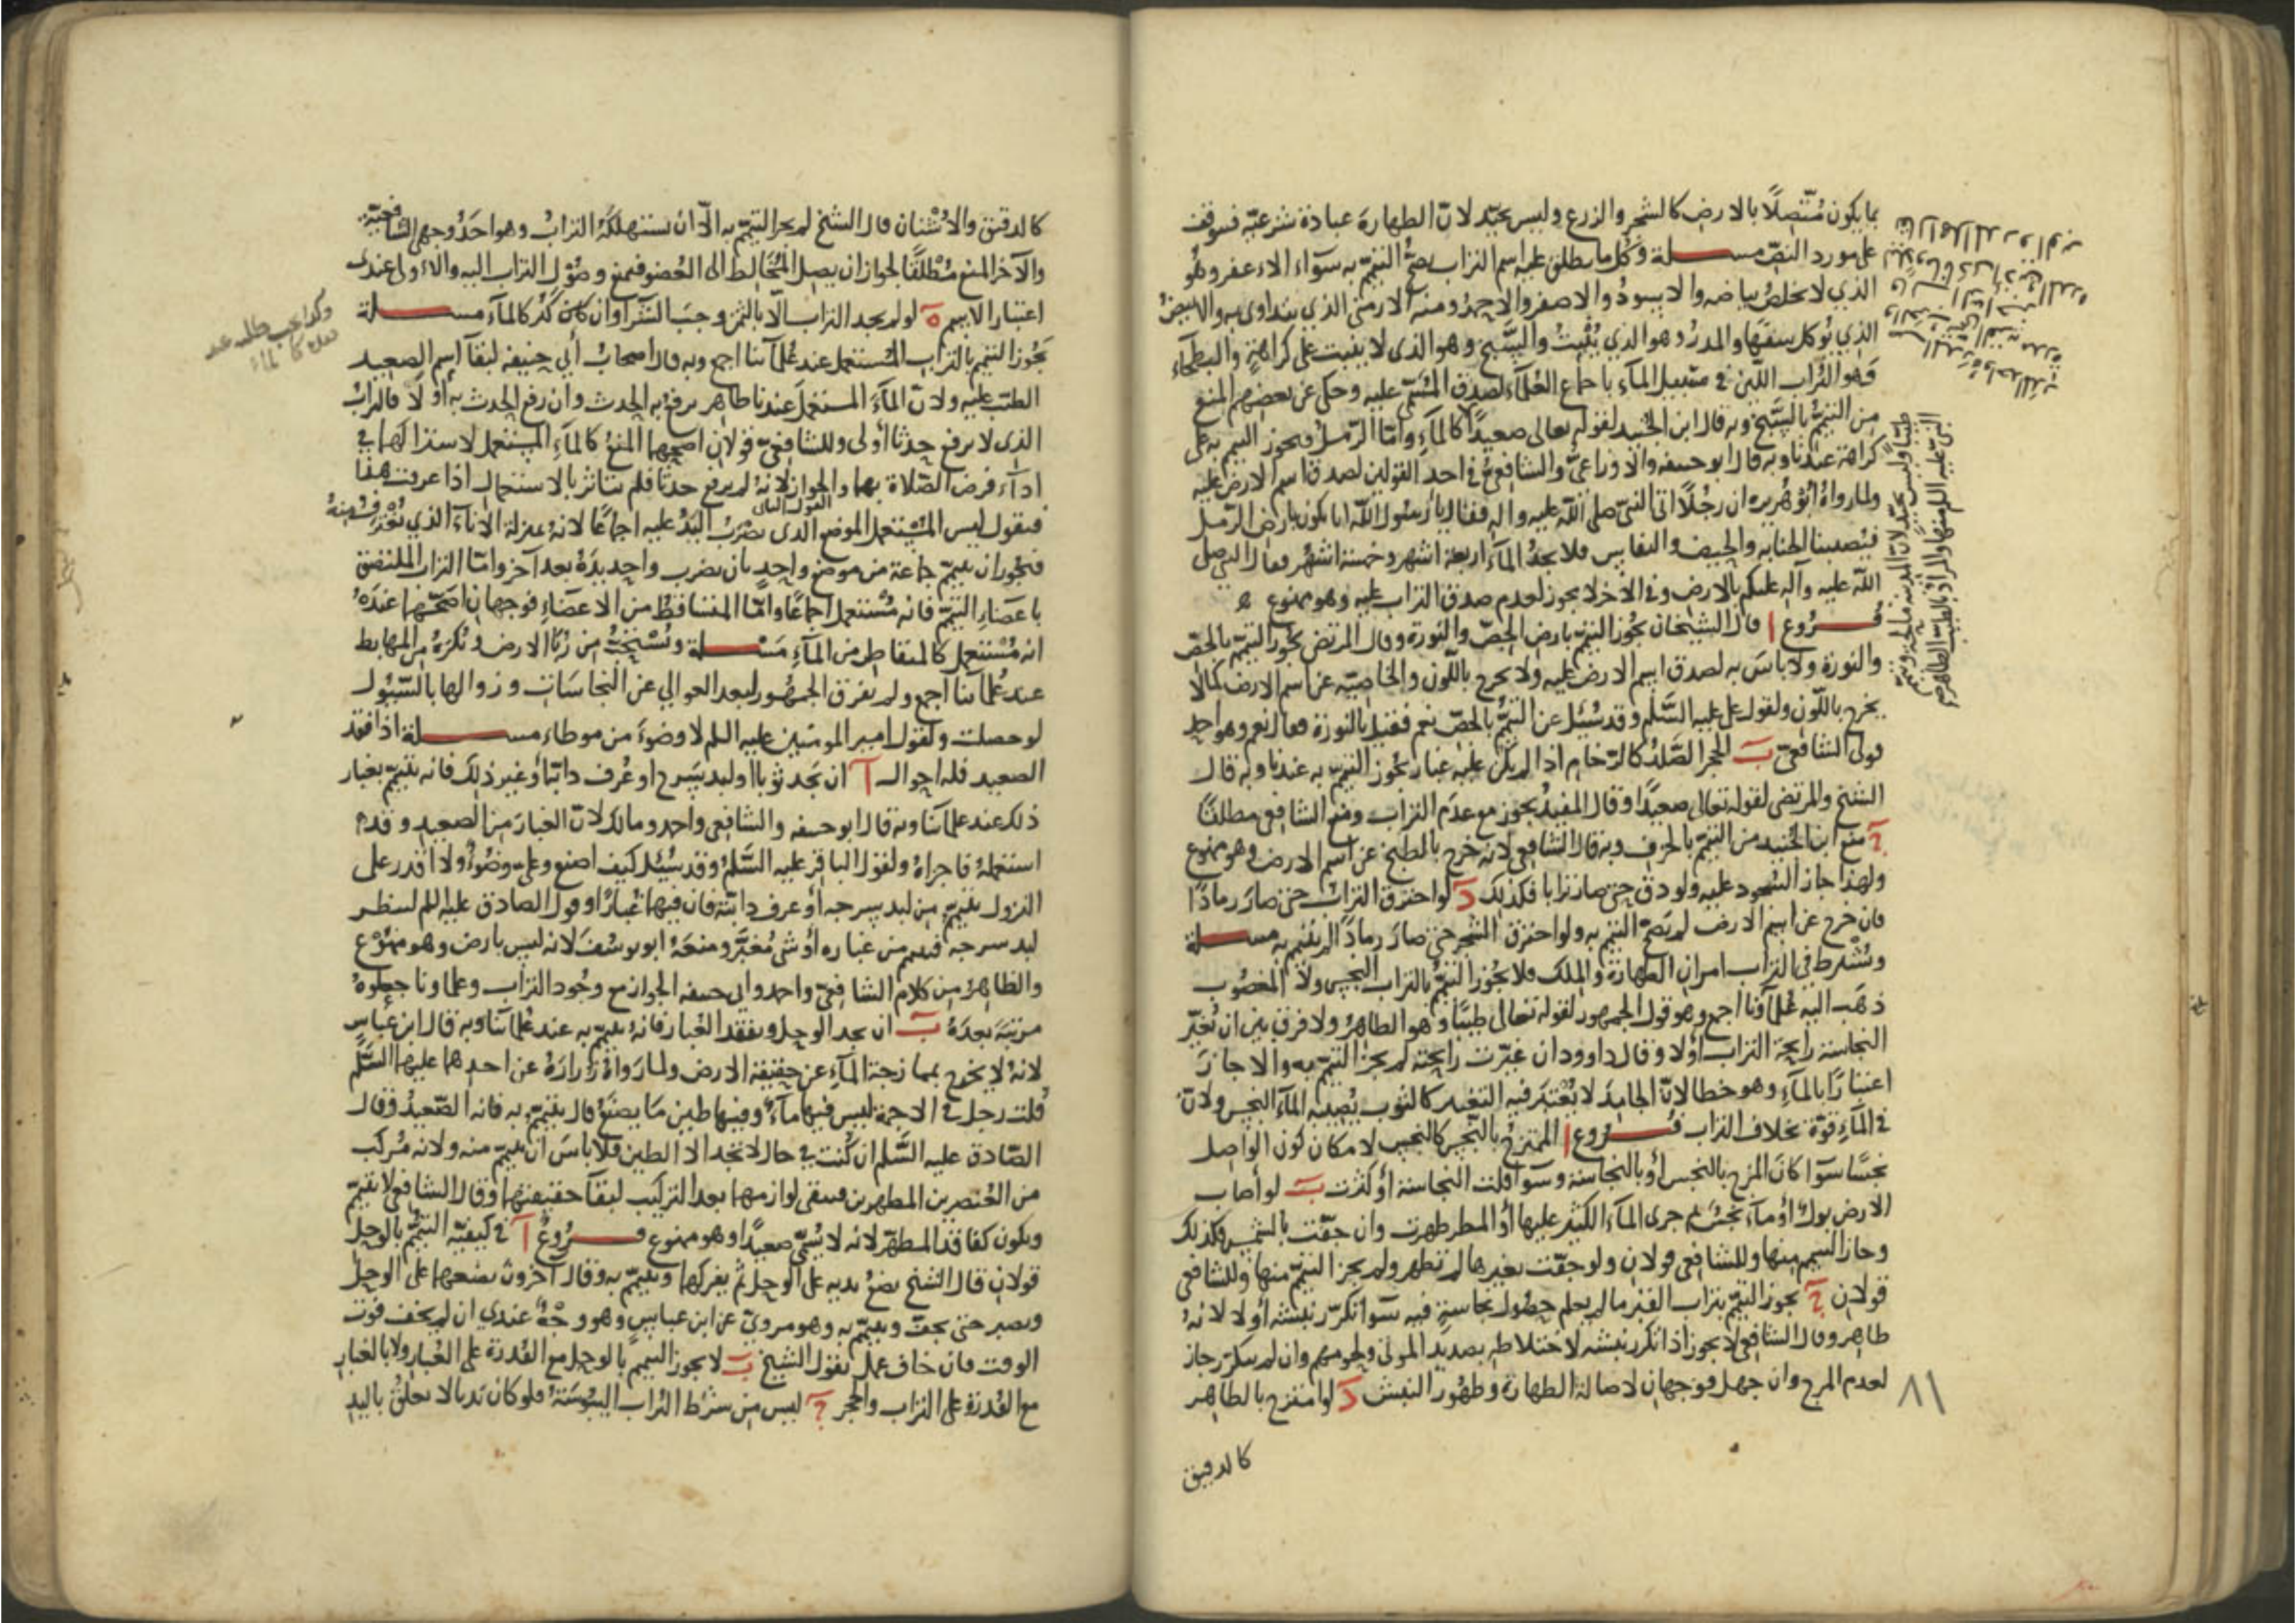 بما يكون متصلًا بالارض كالشجر والزرع وليس بجيد لانّ الطهارة عبادة شرعيّة فتوقف
على مورد النصّ مسلة وكل ما يطلق عليه اسم التراب يصحّ التيمّم به سوآء الاعفر وهو
الذي لا يخلص بياضه والاسود والاصفر والاحمر ومنه الارمنى الذي يتداوى به والابيض
الذي يؤكل سفها والمدر وهو الذي يُنبِت والسَّبخ وهو الذى لا ينبت على كراهية والبطحآء
فهو التُراب الليّن في مسيل المآء باجماع العُلمآء لصدق المسمّى عليه وحكى عن بعضهم المنع
من التيمّم بالسَّبخ وبه قال ابن الجُنيد لقوله تعالى صعيداً كالمآءِ وامّا الرّمل فيجوز التيمم به على
كراهة عندنا وبه قال ابو حنيفه والاوزاعيّ والشافعيّ في احد القولين لصدق اسم الارض عليه
ولما رواهُ ابو هُريره ان رجُلًا اتى النبى صلى الله عليه واله فقال يا رسول الله انا نكون بارض الرّمل
فيُصيبنا الجنابه والحيض والنفاس ولا نجد المآءَ اربعة اشهر وخمسة اشهر فقال النبى صلى
اللّه عليه وآله عليكم بالارض وفى الاخر لا يجوز لعدم صدق التراب عليه وهو ممنوع
فروع ا قال الشيخان يجوز التيمّم بارض الجصّ والنورة وقال المرتضى يجوز التيمّم بالجصّ
والنورة ولا باسَ به لصدق اسم الارض عليه ولا يخرج باللّون والخاصيّه عن اسم الارض كما لا
يخرج باللّون ولقول على عليه السَّلم وقد سُئل عن التيمُّم بالجصّ نعم فقيل بالنورة فقال نعم وهو احد
قولى الشافعيّ ب الحجر الصَّلد كالرخام اذا لم يكن عليه غبار يجوز التيمّم به عندنا وبه قال
الشيخ والمرتضى لقوله تعالى صعيدًا وقال المفيدُ يجوز مع عدم التراب ومنع الشافعى مطلقًا
ج منع ابن الجُنيد من التيمّم بالخزف وبه قال الشافعى لانه خرج بالطبخ عن اسم الارض وهو ممنوع
ولهذا جاز السجود عليه ولو دق حتى صار ترابا فكذلك د لو احترق التراب حتى صار رمادًا
فان خرج عن اسم الارض لم يصحّ التيمّم به ولو احترق الشجر حتى صار رماداً لم يتيمّم به مسلة
ويُشترط في التراب امران الطهارة والملك فلا يجوز التيمّم بالتراب النجس ولا المغصُوب
ذهَب اليه عُلمآؤنا اجمع وهو قول الجمهور لقوله تعالى طيبًا وهو الطاهر ولا فرق بين ان تُغيّر
النجاسة رايحة التراب أولا وقال داوود ان غيّرت رايحته لم يجز التيمّم به والا جازَ
اعتبارًا بالمآءِ وهو خطا لانّ الجامدَ لا يُعتبر فيه التغير كالثوب يُصيبه المآءَ النجس ولانّ
في المآءِ قوّة بخلاف التراب فروع ا الممتزج بالنّجس كالنجس لامكان كون الواصل
نجسًا سوآ كانَ المزج بالنجس أو بالنجاسة وسوآ قلت النجاسة أو كثرت ب لو أصاب
الارض بول أو مآءٌ نجس ثم جرى المآءَ الكثير عليها أو المطر طهرت وان جفّت بالشمس فكذلك
وجاز التيمم منها وللشافعى قولان ولو جفّت بغيرها لم تطهر ولم يجز التيمّم منها وللشافعى
قولان ج يجوز التيمّم بتراب القبر ما لم يعلم حصول نجاسةٍ فيه سوآ تكرّر نبشه أو لا لانهُ
طاهر وقال الشافعى لا يجوز اذا تكرر نبشه لاختلاطه بصديد الموتى ولحومهم وان لم يتكرّر جاز
لعدم المزج وان جهل فوجهان لاصالة الطهارة وظهور النبش د لو امتزج بالطاهر
كالدقيق
النبى عليه السلم منها والمراد بالطيب الطاهر
٨١
كالدقيق والاشنان قال الشيخ لم يجز التيمّم به الّا ان تستهلكهُ التراب وهو احَدُ وجهى الشافعيّة
والآخر المنع مُطلقًا لجواز ان يصل المُخالط الى العُضو فيمنع وصُوْل التراب اليه والاولى عندى
اعتبار الاسم ه لو لم يجد التراب الّا بالثمن وجبَ الشرآ وان كان كثُر كالمآءِ مسلة
يجُوز التيمّم بالتراب المُستعمل عند عُلمآئنا اجمع وبه قال اصحاب أبى حنيفه لبقآ اسم الصعيد
الطيّب عليه ولانّ المآءَ المستعمل عندنا طاهر يرفع به الحدث وان رفع الحدث به أو لَا فالترابُ
الذى لا يرفع حدثا أولى وللشافعيّ قولان اصحّهما المنع كالمآءِ المستعمل لاشتراكهما فى
ادآء فرض الصّلاة بهما والجواز لانهُ لم يرفع حدثا فلم يتاثر بالاستعمال اذا عرفت هذا
القول الثانى
فنقول ليس المُستعمل الموضع الذى يضرب اليدُ عليه اجماعًا لانهُ بمنزلة الانآءِ الذي يُغترف منهُ
فيجوز ان يتيمّم جماعة من موضع واحد بان يضرب واحِد يدَهُ بعد آخر وامّا التراب الملتصق
باعضآءِ التيمّم فانه مُستعمل اجماعًا وامّا المتساقط من الاعضآءِ فوجهان اصحّهما عندهُ
انه مُستعمل كالمتقاطر من المآءِ مسلة ويُستحبّ من رُبَا الارض ويُكرهُ من المهابط
عند عُلمآئنا اجمع ولم يفرّق الجمهُور لبعد العوالي عن النجاسات وزوالها بالسّيُول
لو حصلت ولقول امير المومنين عليه السلم لا وضوءَ من موطاء مسلة اذا فقد
الصعيد فله احوال آ ان يجد ثوبا او لبد سَرج او عُرف دابّة او غير ذلك فانه يتيمّم بغبار
ذلك عند علمآئنا وبه قال ابو حنيفه والشافعى واحمد ومالك لانّ الغبار من الصعيد وقد
استعملهُ فاجزاهُ ولقول الباقر عليه السَّلم وقد سُئل كيف اصنع وعلىّ وضوءٌ ولا اقدر على
النزول تيمّم من لبد سرجه أو عرف دابّته فان فيهما غُبارًا وقول الصادق عليه السلم لينظر
لبد سرجه فيتيمم من غباره أو شى مُغبَّر ومنعهُ ابو يوسُفَ لانه ليس بارض وهو ممنوع
والظاهر من كلام الشافعيّ واحمد وابى حنيفه الجواز مع وجُود التراب وعلماونا جعلوهُ
مرتبةً بعدهُ ب ان يجد الوحل ويفقد الغبار فانهُ يتيمّم به عند عُلمآئنا وبه قال ابن عباس
لانهُ لا يخرج بممازجة المآءِ عن حقيقة الارض ولما رَواهُ زُرارَةُ عن احدهما عليهما السَّلم
قُلت رجل فى الاجمة ليس فيها مآءٌ وفيها طين مَا يصنعُ قال يتيمّم به فانه الصّعيدُ وقال
الصّادق عليه السَّلم ان كُنت فى حال لا تجد الا الطين فلا باسَ ان تتيمّم منه ولانه مُركب
من العُنصرين المطهرين فيبقى لوازمهما بعد التركيب لبقآ حقيقتهما وقال الشافعى لا يتيمّم
ويكون كفاقد المطهّر لانه لا يُسمّى صعيدًا وهو ممنوع فروع آ في كيفيّه التيمُّم بالوحل
قولان قال الشيخ يضعُ يديه على الوحل ثم يفركهما ويتيمّم به وقال آخرون يضعهما على الوحل
ويصبر حتى يجفّ ويتيمّم به وهو مرويّ عن ابن عباسٍ وهو وجهٌ عندي ان لم يخف فوت
الوقت فان خاف عمل بقول الشيخ ب لا يجوز التيمم بالوحل مع القُدرة على الغُبار ولا بالغبار
مع القُدرة على التراب والحجر ج ليس من شرط التُراب اليبُوسَةُ فلو كان نديا لا يعلقُ باليد
وكذا يجب طلبه عند